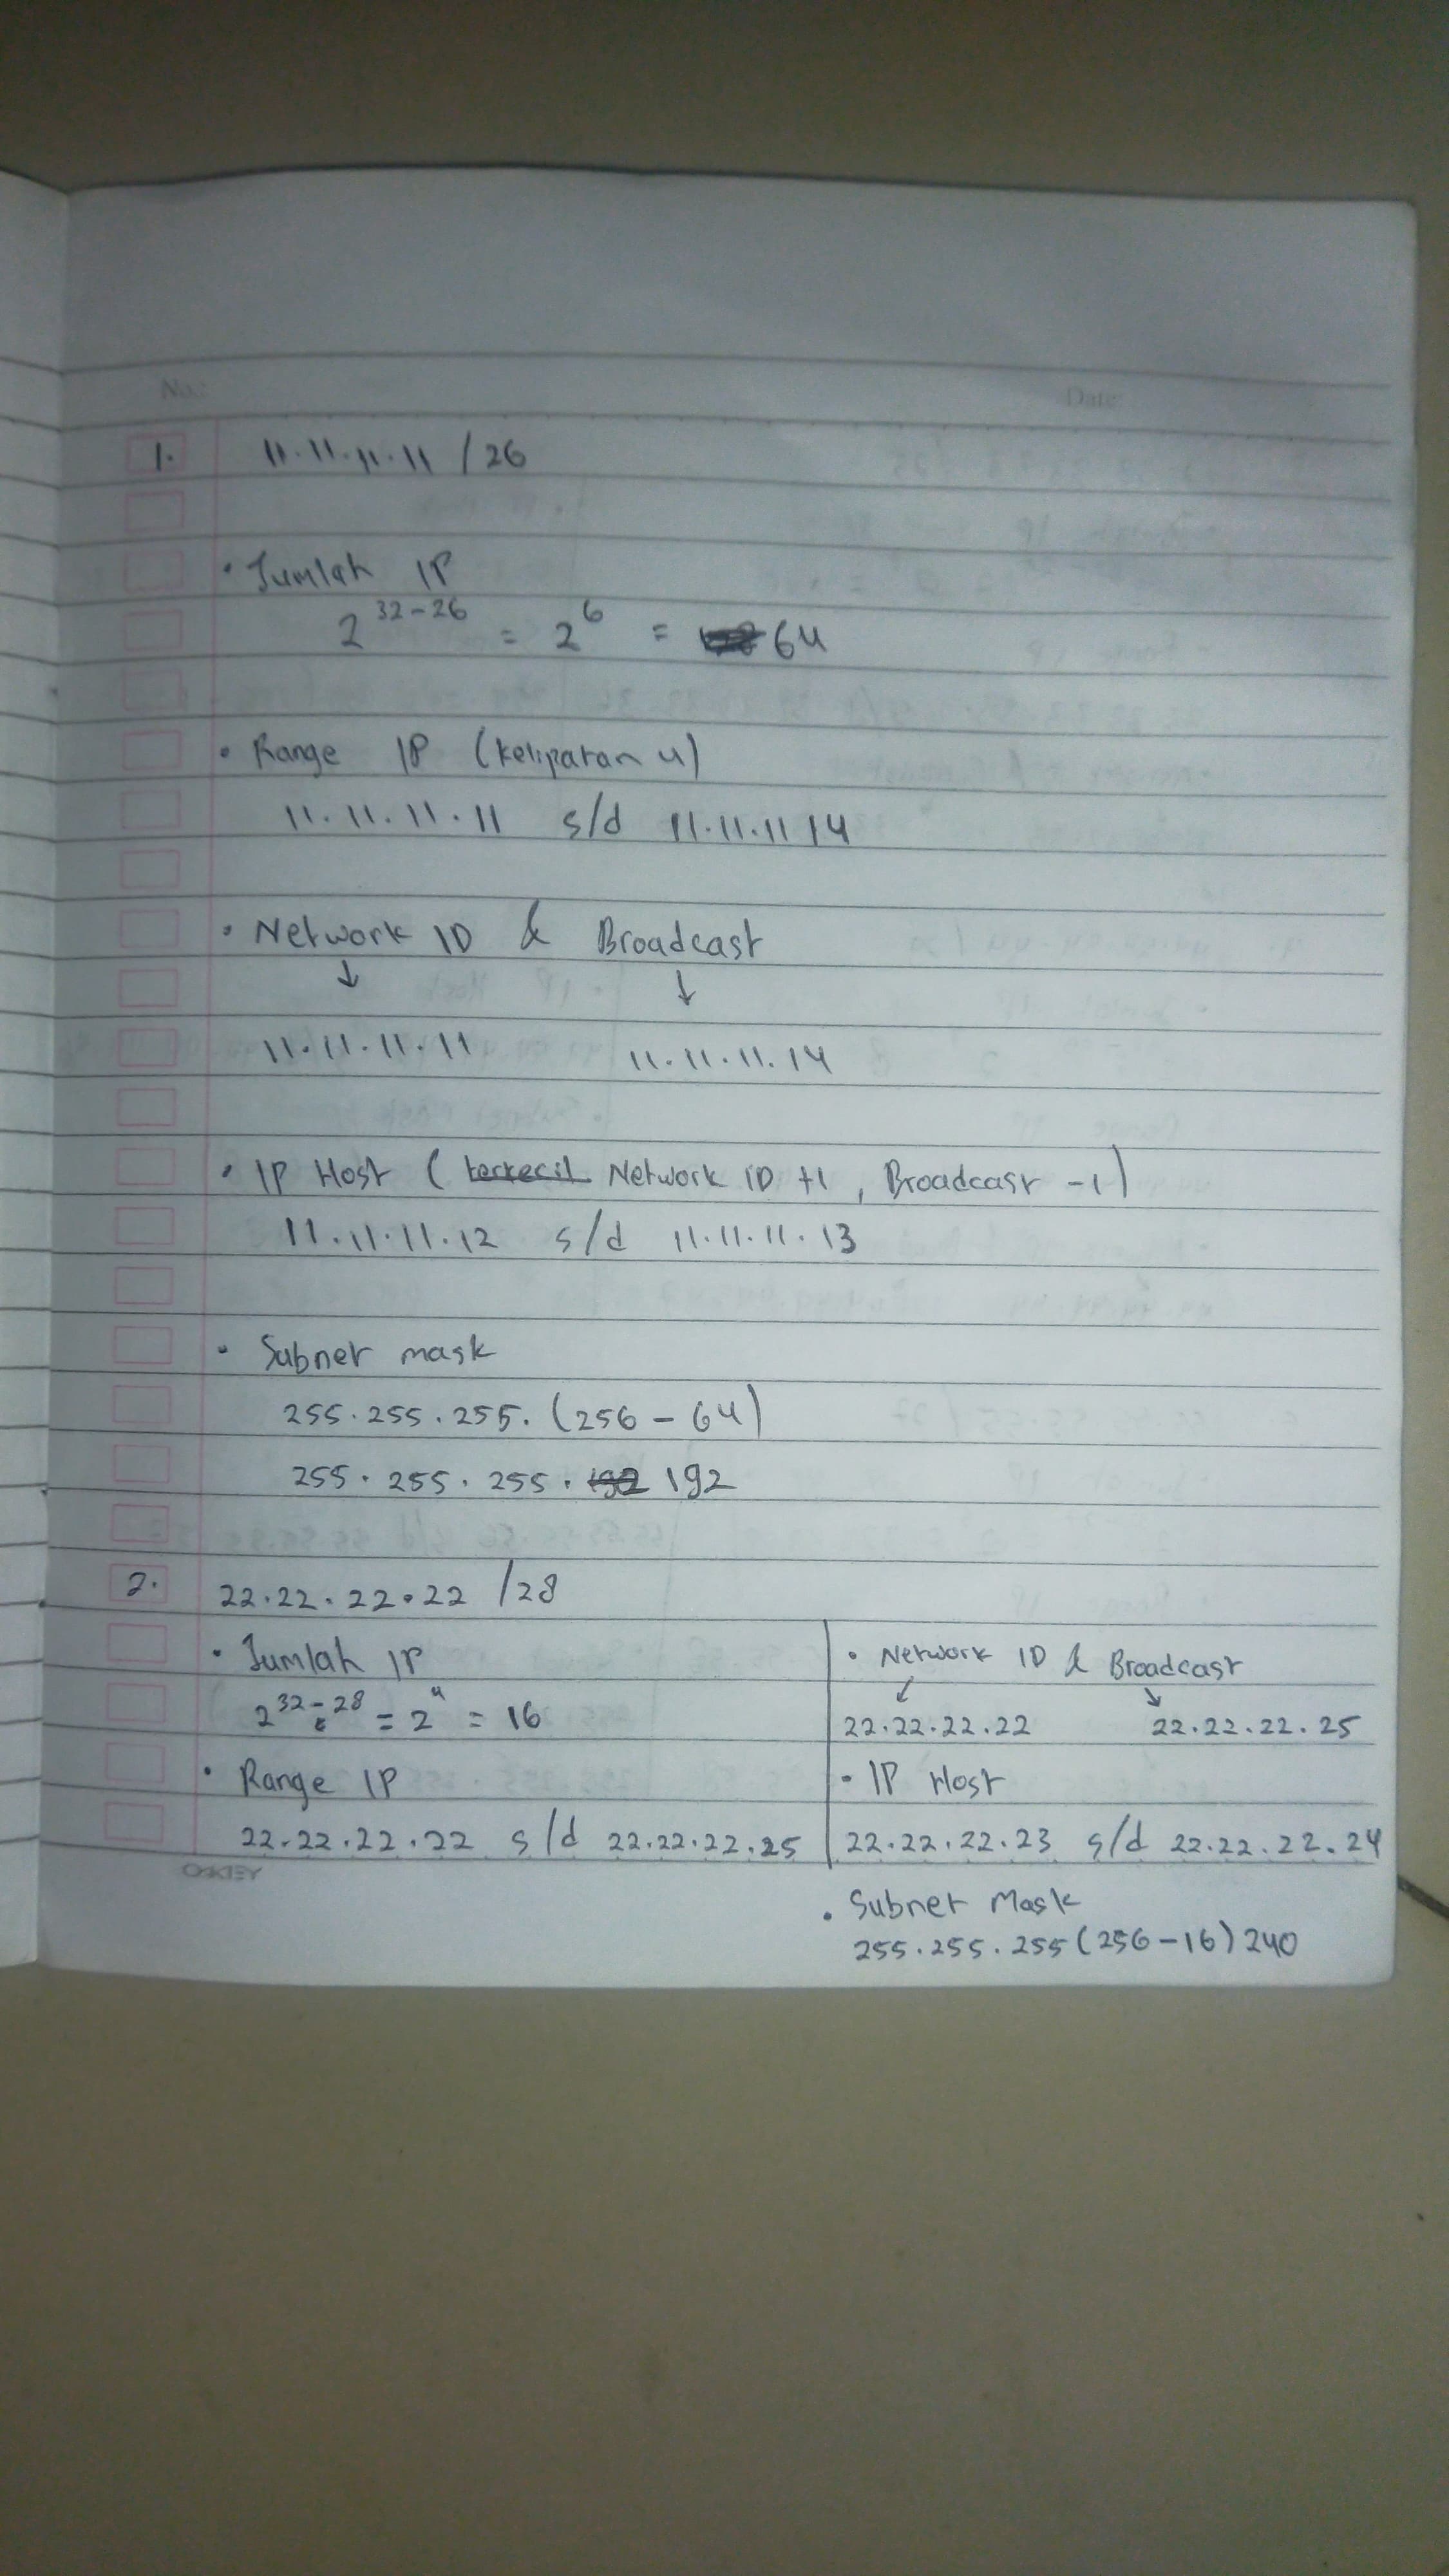 No.:
Date:
1. 11.11.11.11 /26
• Jumlah IP
2^32-26 = 2^6 = 64
• Range IP (kelipatan 4)
11.11.11.11 s/d 11.11.11 14
• Network ID & Broadcast
↓ ↓
11.11.11.11 11.11.11.14
• IP Host ( terkecil Network ID +1, Broadcast -1)
11.11.11.12 s/d 11.11.11.13
• Subnet mask
255.255.255.(256 - 64)
255.255.255. 192
2. 22.22.22.22 /28
• Jumlah IP
2^32-28 = 2^4 = 16
• Range IP
22.22.22.22 s/d 22.22.22.25
• Network ID & Broadcast
↓ ↓
22.22.22.22 22.22.22.25
• IP Host
22.22.22.23 s/d 22.22.22.24
• Subnet Mask
255.255.255(256-16)240